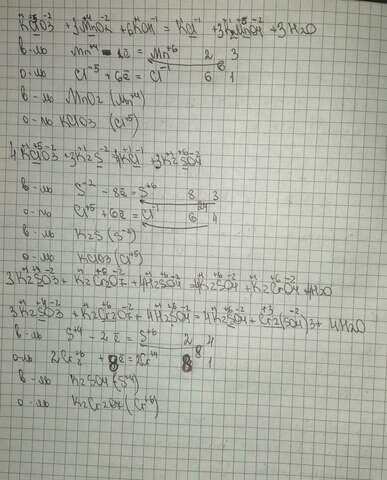 KClO3 + 3MnO2 + 6KOH = KCl + 3K2MnO4 + 3H2O
в-ль Mn+4 - 2ē = Mn+6 2 3
о-ль Cl+5 + 6ē = Cl-1 6 1
в-ль MnO2 (Mn+4)
о-ль KClO3 (Cl+5)
4KClO3 + 3K2S = 4KCl + 3K2SO4
в-ль S-2 - 8ē = S+6 8 3
24
о-ль Cl+5 + 6ē = Cl-1 6 4
в-ль K2S (S-2)
о-ль KClO3 (Cl+5)
3K2SO3 + K2Cr2O7 + 4H2SO4 = 4K2SO4 + K2CrO4 + 4H2O
3K2SO3 + K2Cr2O7 + 4H2SO4 = 4K2SO4 + Cr2(SO4)3 + 4H2O
в-ль S+4 - 2ē = S+6 2 4
8
о-ль 2Cr+6 + 8ē = 2Cr+4 8 1
в-ль K2SO4 (S+4)
о-ль K2Cr2O7 (Cr+6)